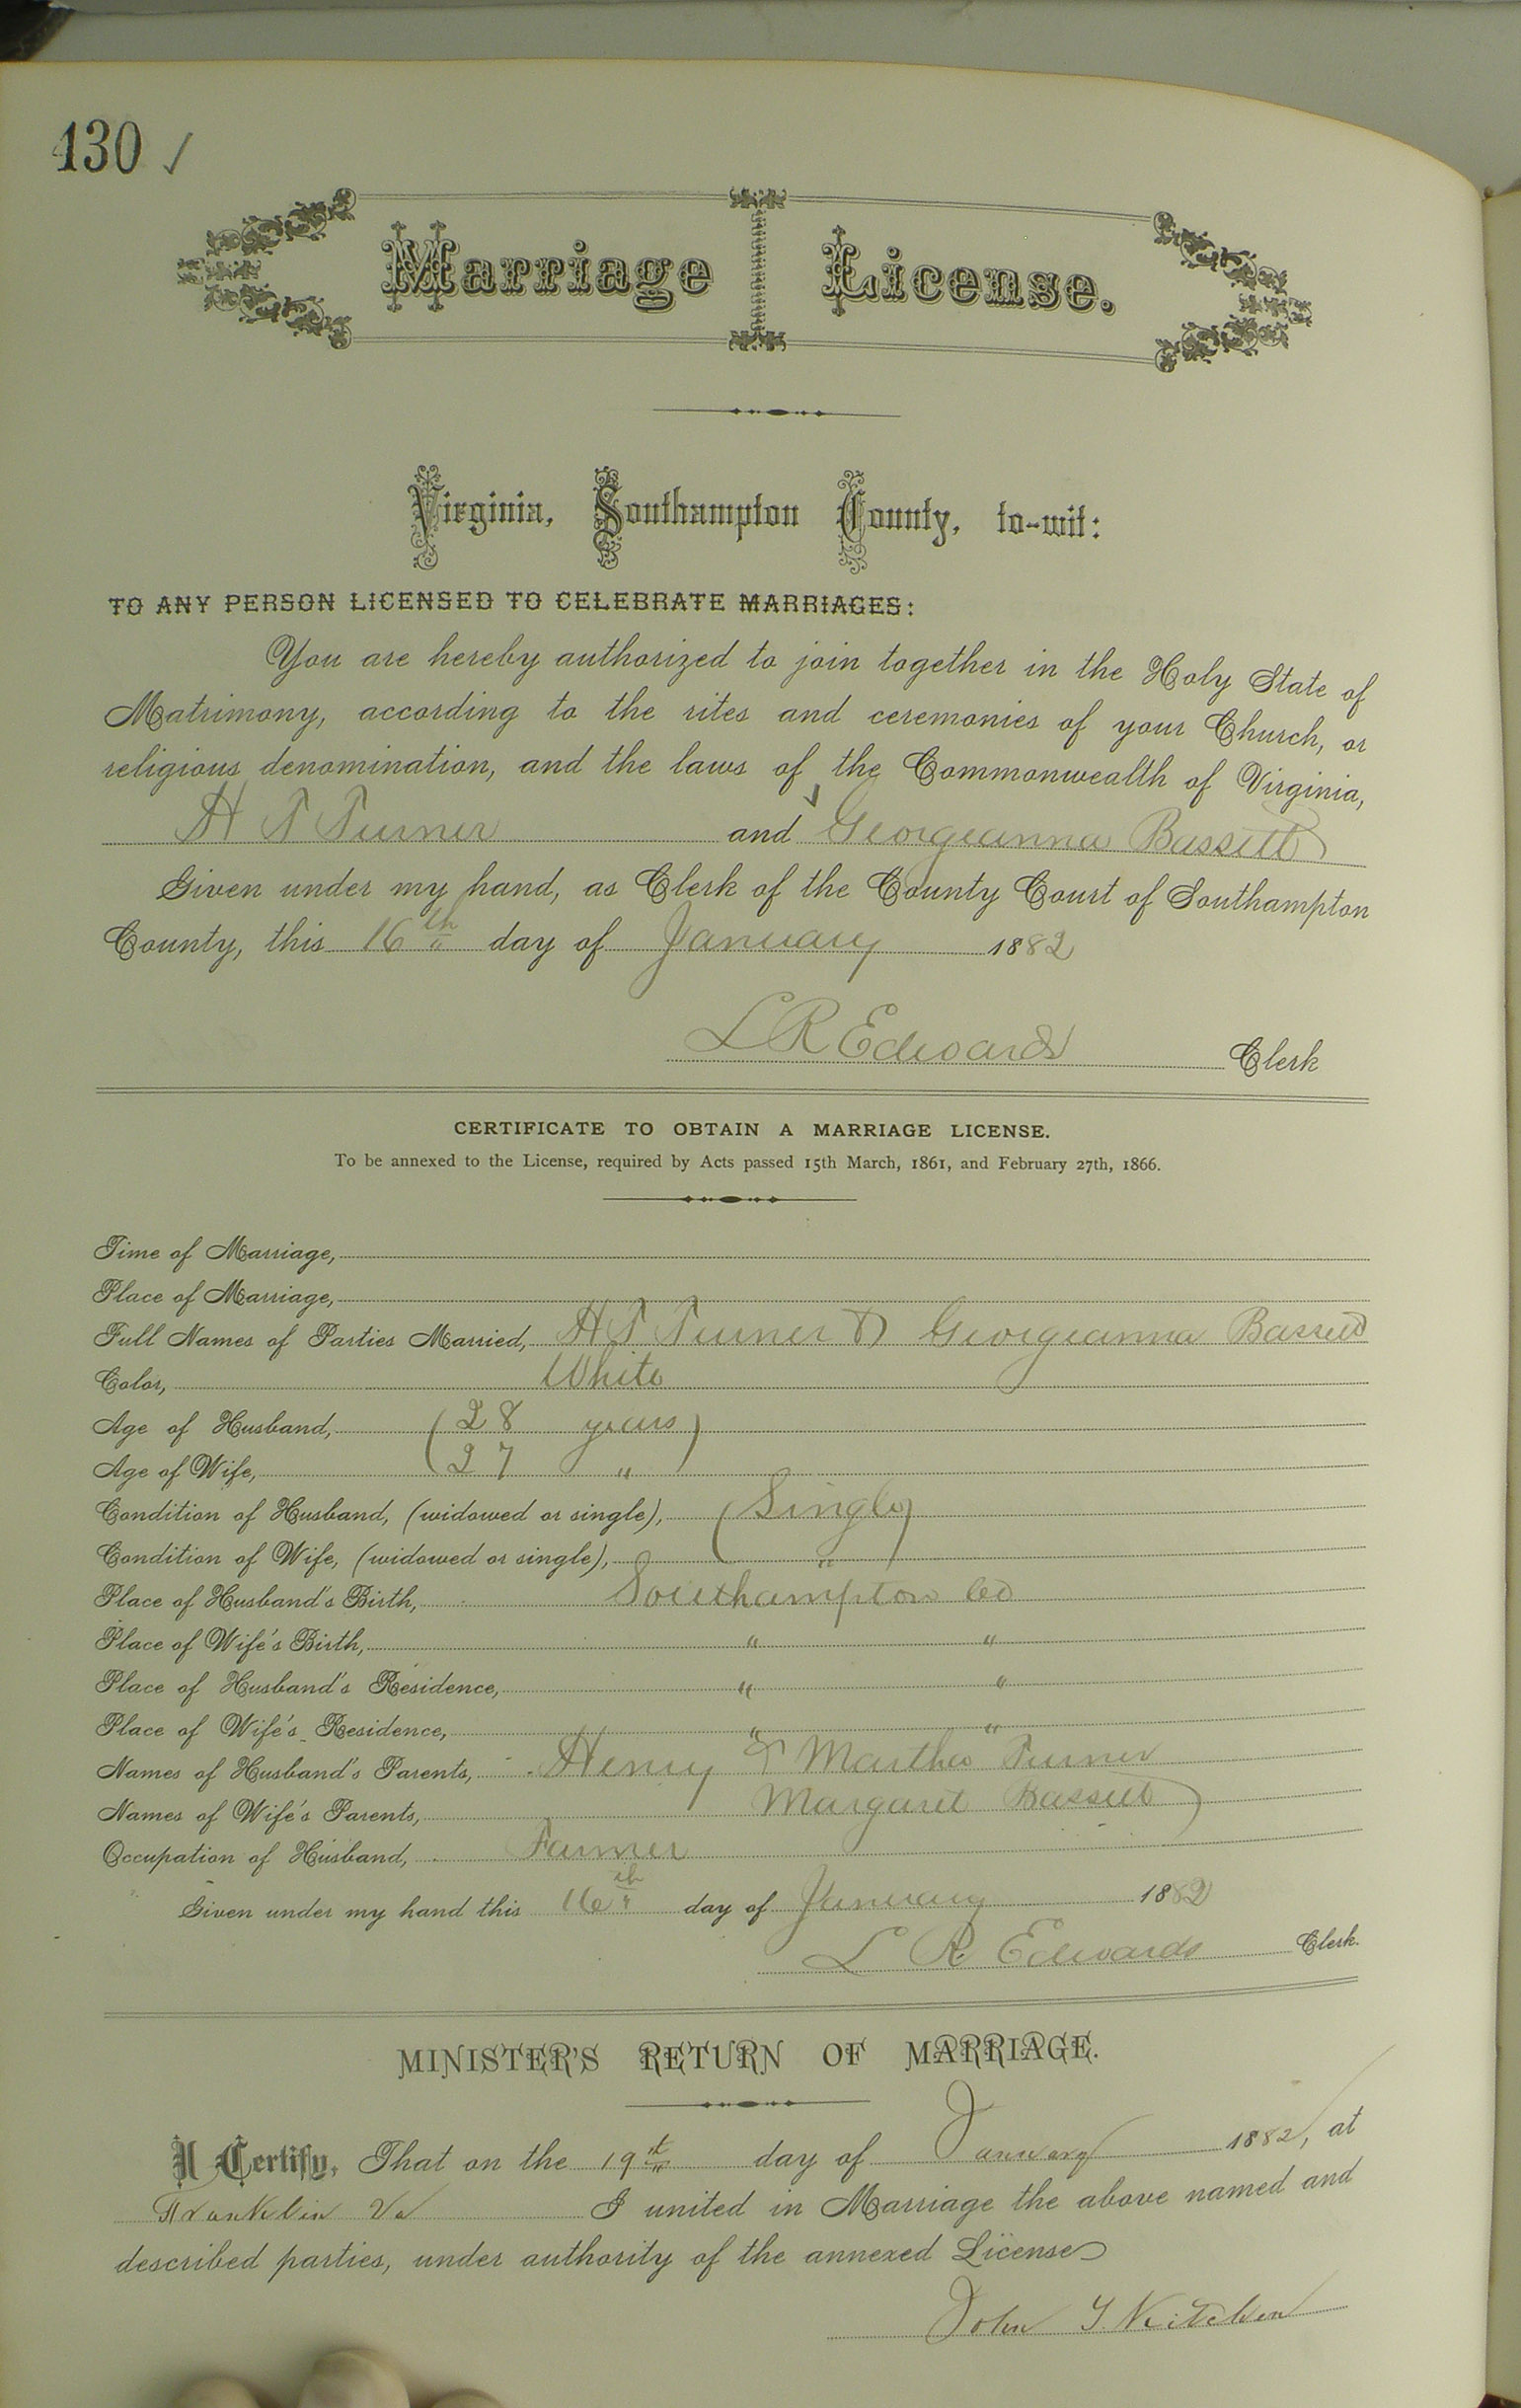 130 ✓
Marriage License.
Virginia, Southampton County, to-wit:
TO ANY PERSON LICENSED TO CELEBRATE MARRIAGES:
You are hereby authorized to join together in the Holy State of
Matrimony, according to the rites and ceremonies of your Church, or
religious denomination, and the laws of the Commonwealth of Virginia,
H T Turner and Georgeanna Bassett
Given under my hand, as Clerk of the County Court of Southampton
County, this 16th day of January 1882
L R Edwards Clerk
CERTIFICATE TO OBTAIN A MARRIAGE LICENSE.
To be annexed to the License, required by Acts passed 15th March, 1861, and February 27th, 1866.
Time of Marriage,
Place of Marriage,
Full Names of Parties Married, H T Turner & Georgeanna Bassett
Color, White
Age of Husband, (28 years)
Age of Wife, (27 ")
Condition of Husband, (widowed or single), (Single)
Condition of Wife, (widowed or single), ( " )
Place of Husband's Birth, Southampton Co
Place of Wife's Birth, " "
Place of Husband's Residence, " "
Place of Wife's Residence, " "
Names of Husband's Parents, Henry & Martha Turner
Names of Wife's Parents, Margaret Bassett
Occupation of Husband, Farmer
Given under my hand this 16th day of January 1882
L R Edwards Clerk.
MINISTER'S RETURN OF MARRIAGE.
I Certify, That on the 19th day of January 1882, at
Franklin Va I united in Marriage the above named and
described parties, under authority of the annexed License
John T. Kitchen